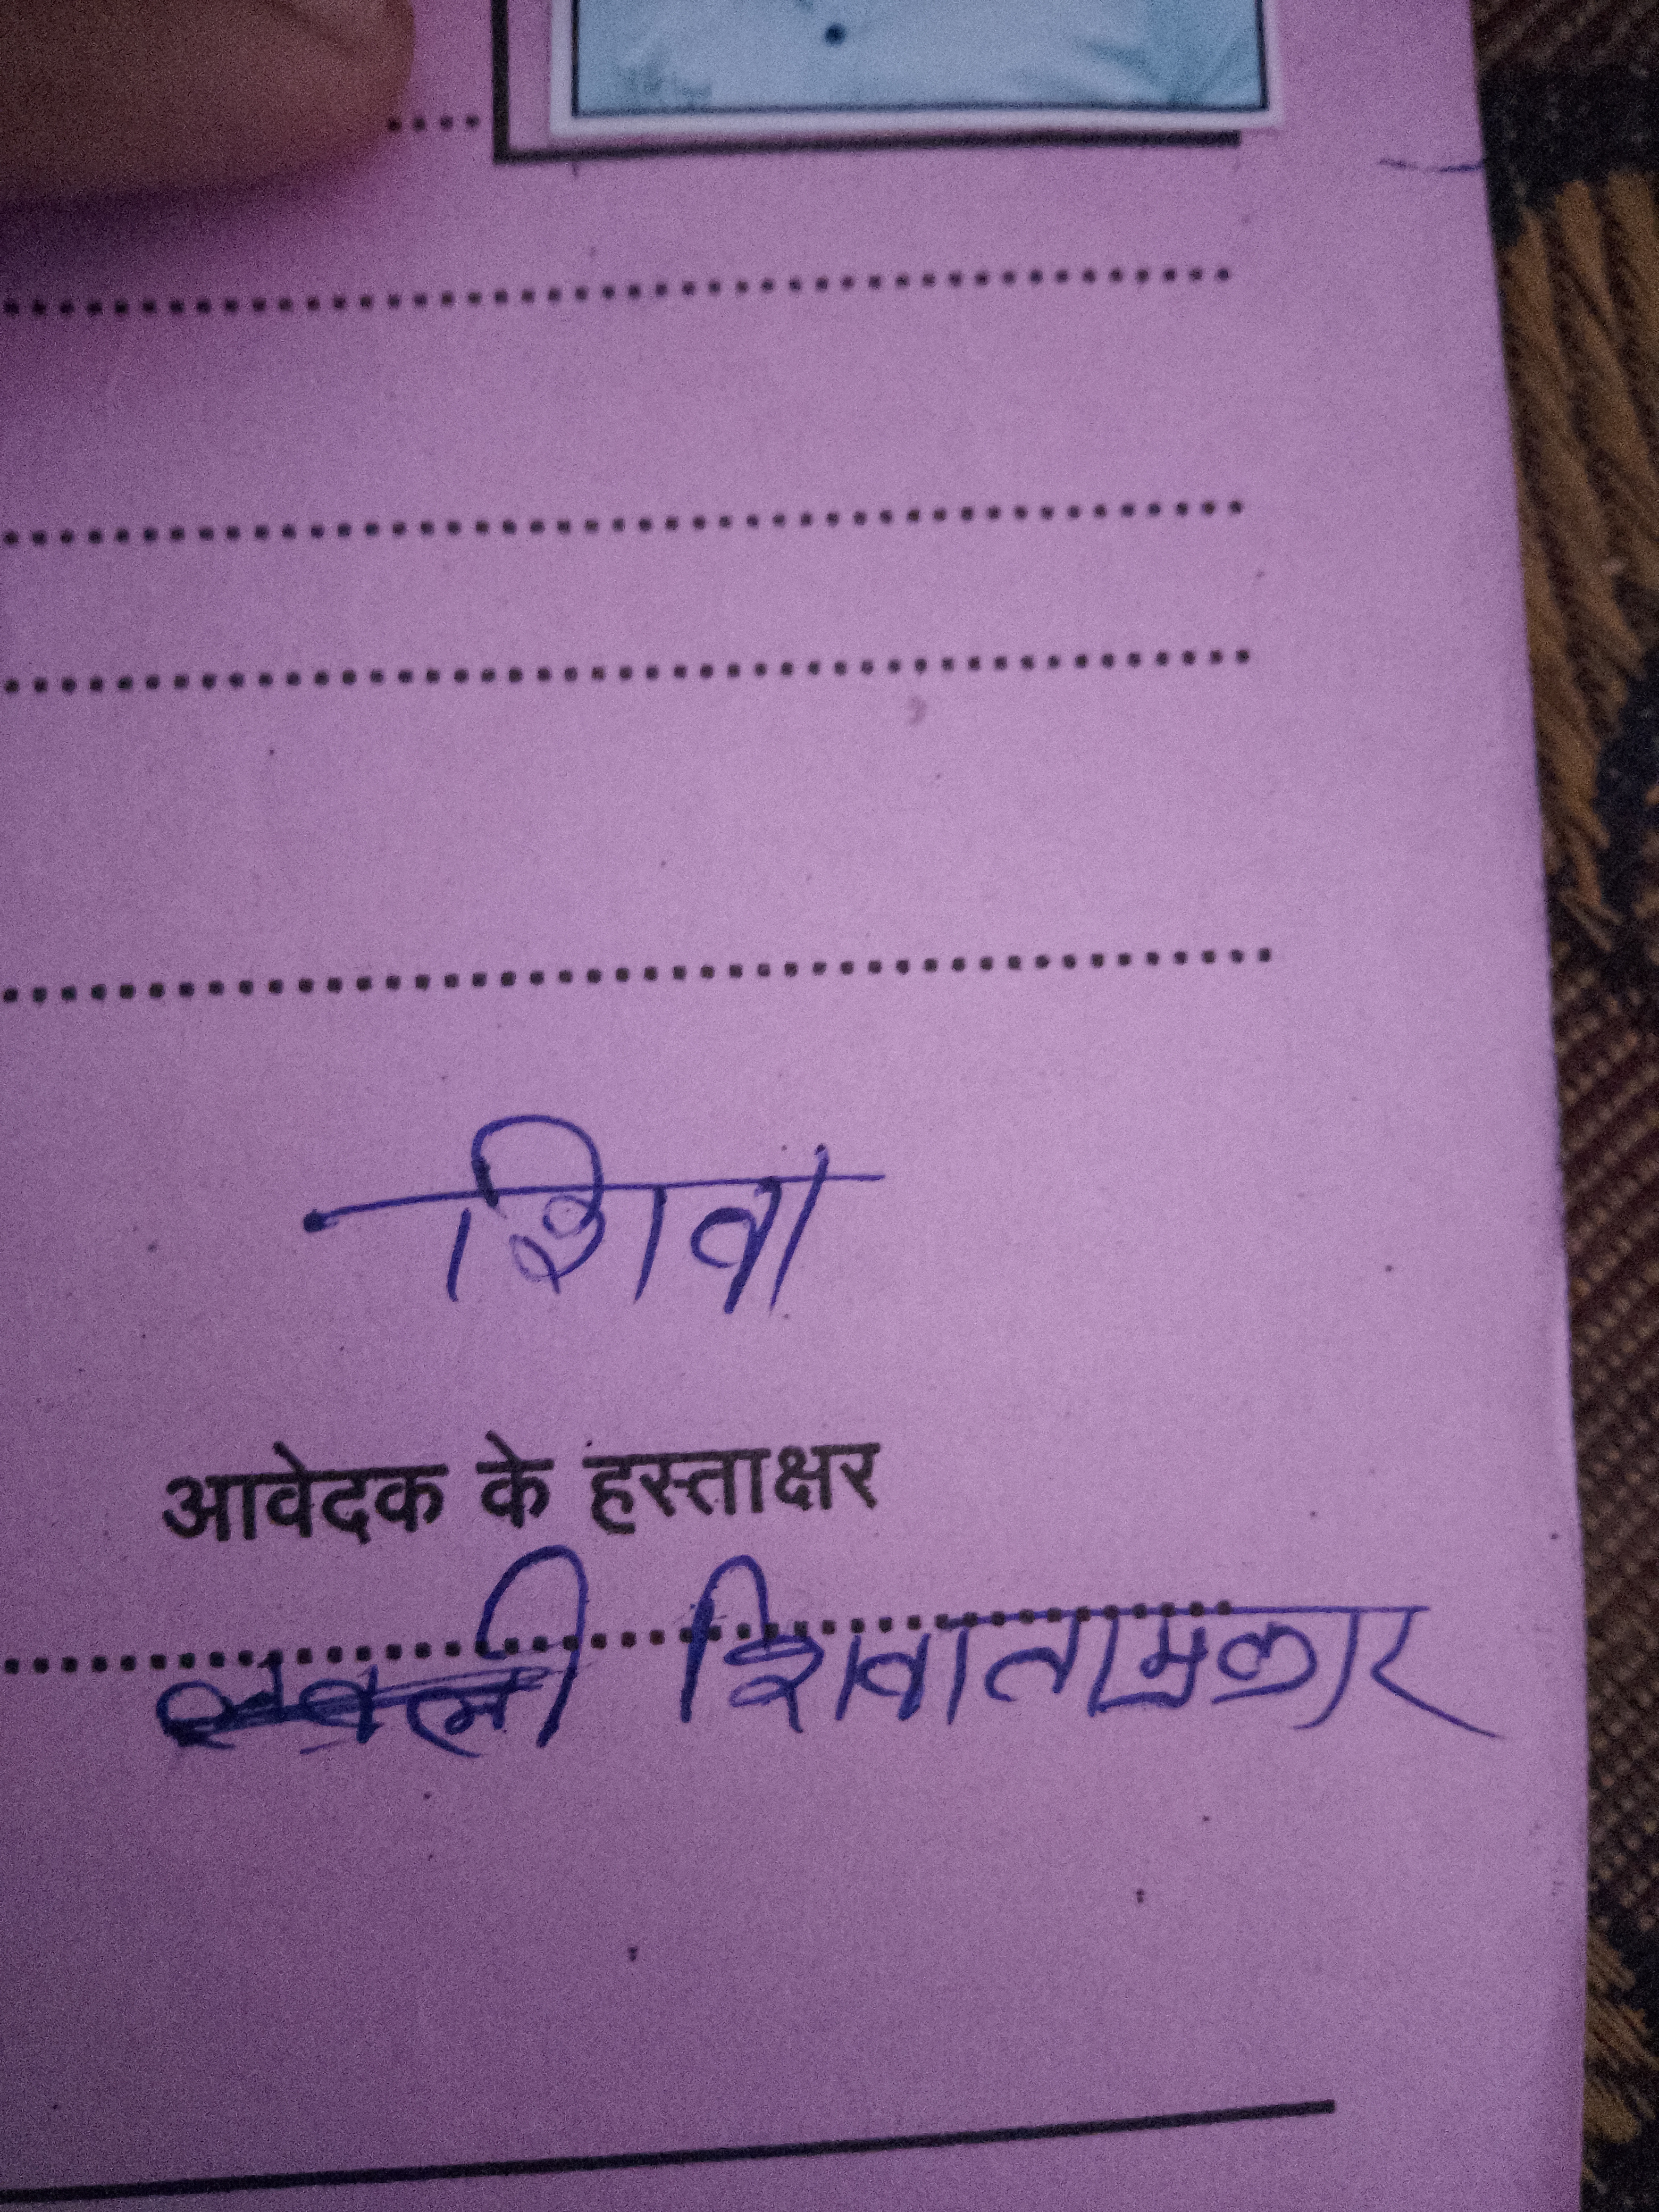 शिवा
आवेदक के हस्ताक्षर
शिवा ताम्रकार